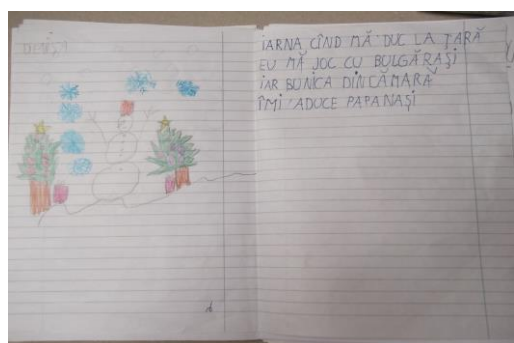 IARNA CÎND MĂ DUC LA ȚARĂ
EU MĂ JOC CU BULGĂRAȘI
IAR BUNICA DIN CĂMARĂ
ÎMI ADUCE PAPANAȘI